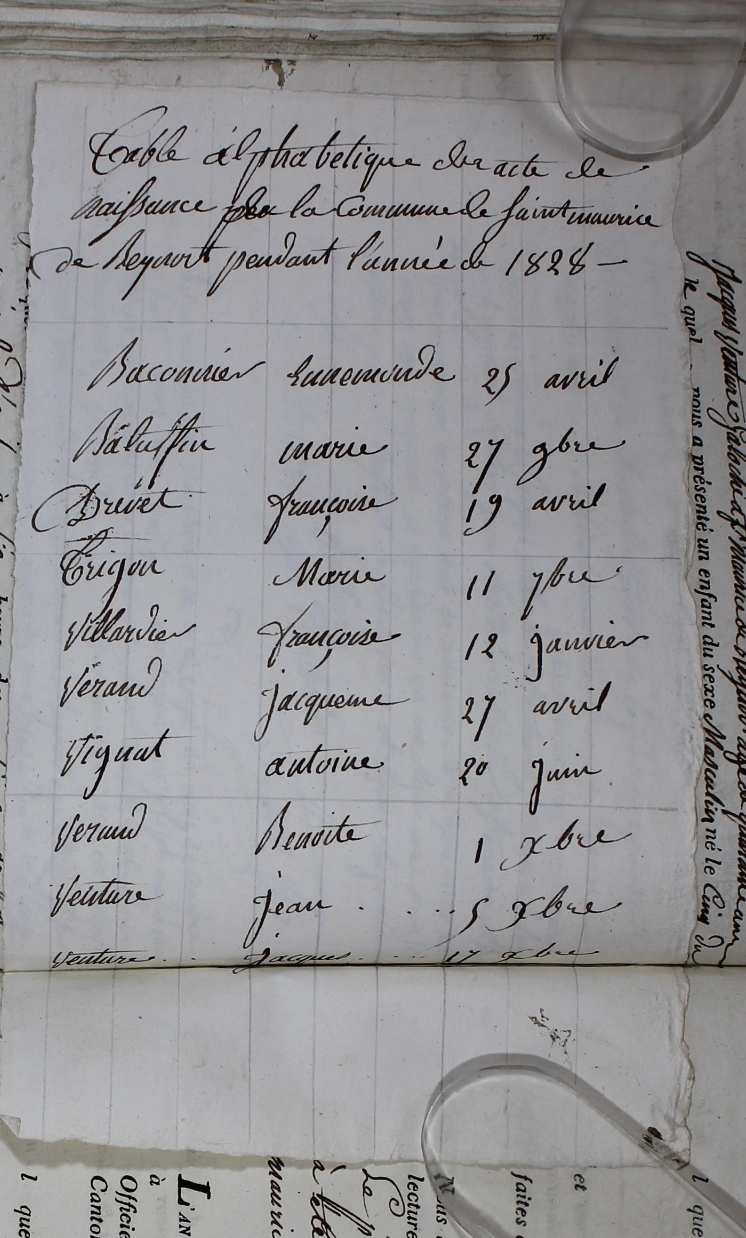 Table álphabetique des acte de
naissance de la Commune de Saint maurice
de Beynost pendant l'année de 1828 —
Baconnier Ennemonde 25 avril
Baluffin marie 27 9bre
Drévet françoise 19 avril
Trigon Marie 11 7bre
Villardier françoise 12 janvier
Véraud jacqueme 27 avril
Vignat antoine 20 juin
Veraud Benoite 1 xbre
Venture jean . . . . . 5 xbre
Venture . . jacques . . . . 17 xbre
le quel nous a présenté un enfant du sexe Masculin né le Cinq du
L'AN
à
Officie
Canton
Nous
lecture
faites
et
l que
l que